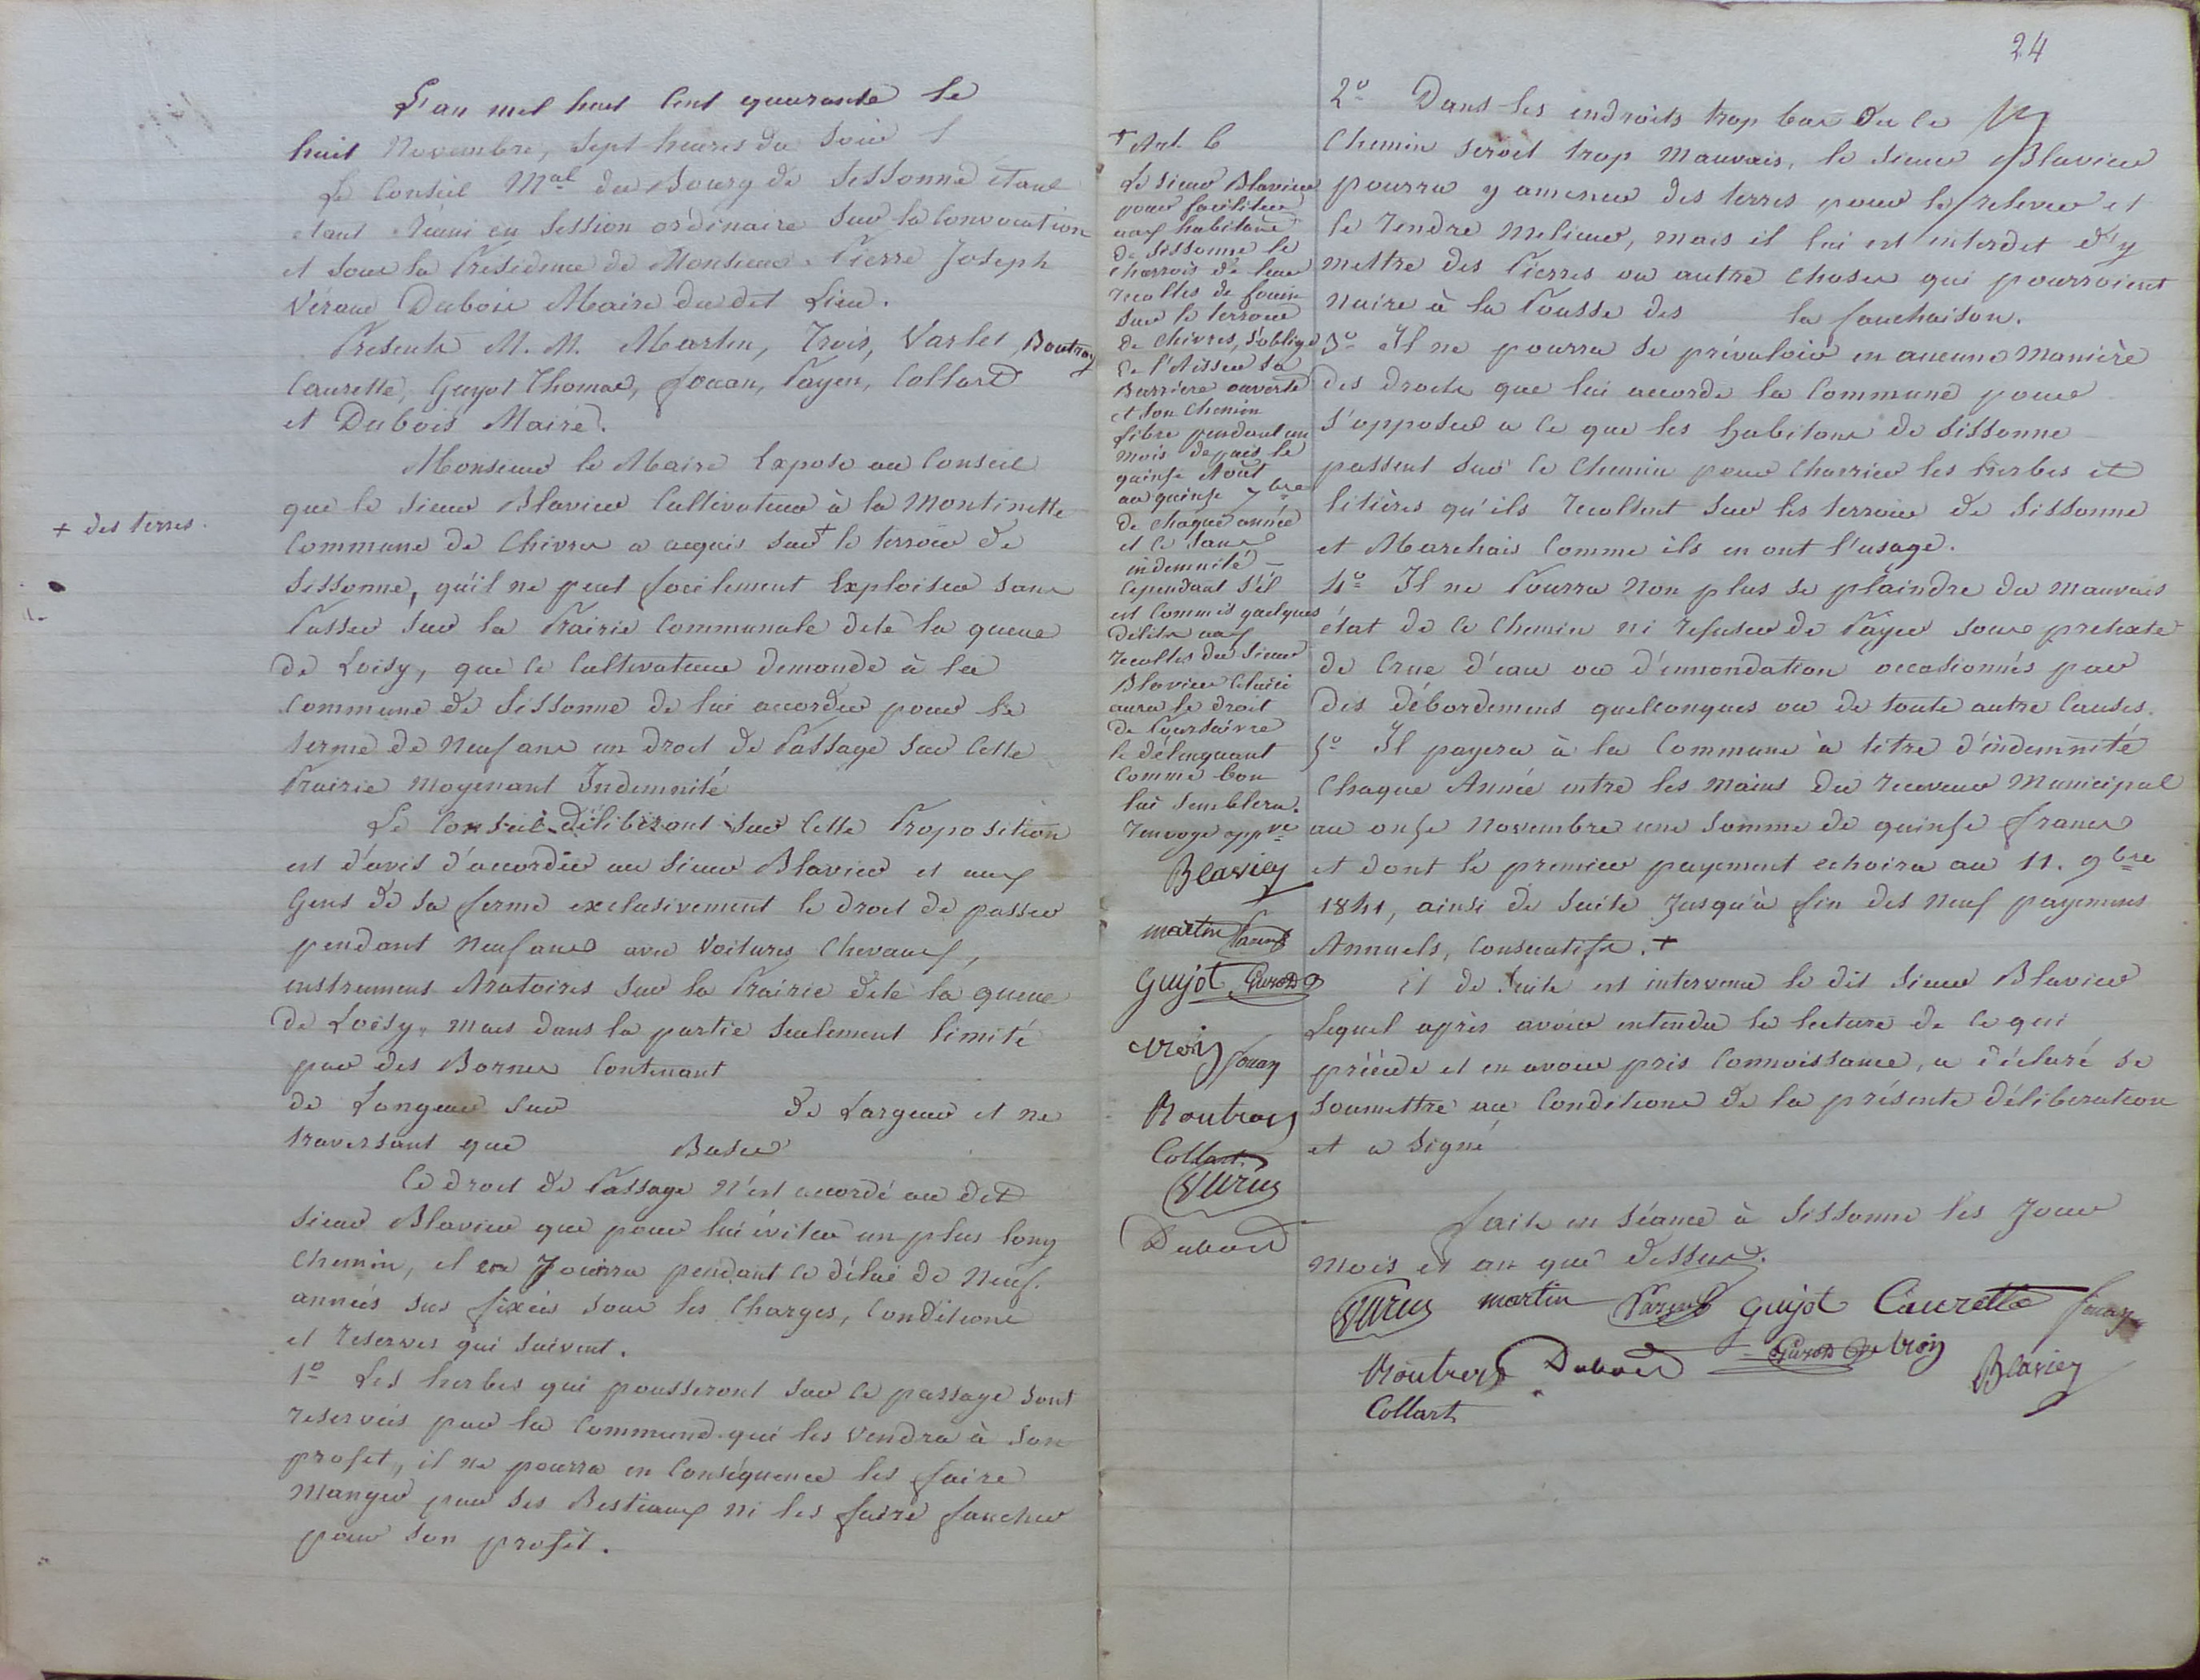 L'an mil huit Cent quarante le
huit Novembre, Sept heures du Soir
Le Conseil Mal du Bourg de Sissonne étant
étant Réuni en Session ordinaire Sur la Convocation
et sous la Présidence de Monsieur Pierre Joseph
Véron Dubois Maire du dit Lieu.
Présents M. M. Martin, Trois, Varlet, Boutroy
Caurette, Guyot Thomas, fouan, Payen, Collart
et Dubois Maire.
Monsieur le Maire Expose au Conseil
que le Sieur Blavier Cultivateur à la Montinette
+ des terres.
Commune de Chivres a acquis + sur le terroir de
Sissonne, qu'il ne peut facilement Exploiter sans
Passer sur la Prairie Communale dite la queue
de Loisy, que ce Cultivateur demande à la
Commune de Sissonne de lui accorder pour le
terme de Neuf ans un droit de Passage sur Cette
Prairie Moyenant Indemnité
Le Conseil délibérant sur Cette Proposition
est d'avis d'accorder au Sieur Blavier et aux
Gens de sa ferme exclusivement le droit de passer
pendant Neuf ans avec Voitures Chevaux,
instrumens Aratoires sur la Prairie dite la queue
de Loisy, mais dans la partie seulement limité
par des Bornes Contenant
de Longueur sur de Largeur et ne
traversant que Buses
Ce droit de Passage N'est accordé au dit
Sieur Blavier que pour lui éviter un plus long
Chemin, il en Jouira pendant ce délai de Neuf
années sus fixées sous les Charges, Conditions
et reserves qui suivent.
1o Les herbes qui pousseront sur ce passage sont
reservées par la Commune qui les vendra à son
profit, il ne pourra en Conséquence les faire
Manger par ses Bestiaux ni les faire faucher
pour son profit.
+ Art. 6
Le Sieur Blavier
pour faciliter
aux habitans
de Sissonne le
charrois de leur
recoltes de foin
sur le terroir
de Chivres, s'oblige
de Laisser sa
Barriere ouverte
et son Chemin
libre pendant un
mois depuis le
quinze Aout
au quinze 7bre
de chaque année
et ce sans
indemnité —
Cependant s'il
est Commis quelques
délits aux
recoltes du Sieur
Blavier Celui ci
aura le droit
de Poursuivre
le délinquant
Comme bon
lui semblera.
Renvoye appve
Blavier
martin
Guyot
Trois fouan
Boutroy
Collart
Dubois
24
2o Dans les endroits trop bas où ce
Chemin seroit trop Mauvais, le Sieur Blavier
pourra y amener des terres pour le relever et
le rendre Melieur, mais il lui est interdit d'y
mettre des Pierres ou autre Choses qui pourroient
nuire à la Pousse des la fauchaison.
3o Il ne pourra se prévaloir en aucune Manière
des droits que lui accorde la Commune pour
s'opposer a ce que les habitans de Sissonne
passent sur ce Chemin pour Charrier les herbes et
litières qu'ils recoltent sur les terroirs de Sissonne
et Marchais Comme ils en ont l'usage.
4o Il ne Pourra Non plus se plaindre du Mauvais
état de ce Chemin ni refuser de Payer sous pretexte
de Crue d'eau ou d'innondation occasionnés par
des débordemens quelconques ou de toute autre Causes.
5o Il payera à la Commune à titre d'indemnité
Chaque Année entre les Mains du receveur Municipal
au onze Novembre une somme de quinze francs
et dont le premier payement echoira au 11. 9bre
1841, ainsi de Suite Jusqu'à fin des Neuf payemens
Annuels, Consecutifs. +
Et de Suite est intervenu le dit Sieur Blavier
Lequel après avoir entendu la lecture de ce qui
précède et en avoir pris Connoissance, a déclaré se
Soumettre aux Conditions de la présente délibération
et a Signé
faite en Séance à Sissonne les Jour
Mois et an que dessus.
martin Guyot Caurette fouan
Boutroy Dubois Trois Blavier
Collart